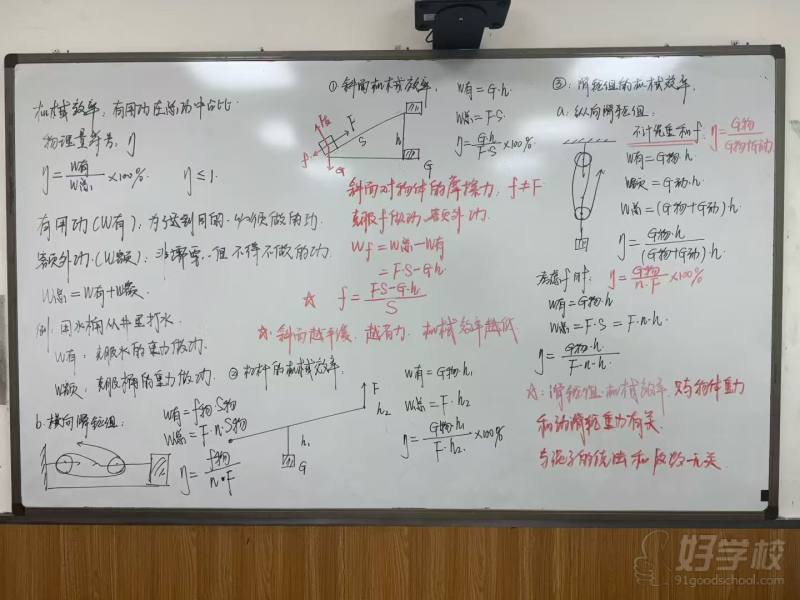 机械效率：有用功在总功中占比
物理量符号：η
η=W有/W总×100%. η≤1.
有用功(W有)：为达到目的.必须做的功.
额外功.(W额)：非需要.但不得不做的功.
W总=W有+W额.
例：用水桶从井里打水.
W有：克服水的重力做功.
W额：克服桶的重力做功.
b.横向滑轮组：
W有=f物·S物
W总=F·n·S物
η=f物/n·F
①斜面机械效率.
F
f
S
h
G
G
W有=G·h.
W总=F·S.
η=G·h/F·S×100%
斜面对物体的摩擦力.f≠F
克服f做功：额外功.
Wf=W总-W有
=F·S-G·h.
☆ f=FS-G·h/S
☆.斜面越平缓，越省力.机械效率越低
②杠杆的机械效率.
F
h2
h1
G
W有=G物·h1
W总=F·h2
η=G物·h1/F·h2×100%
③:滑轮组的机械效率.
a:纵向滑轮组:
不计绳重和f: η=G物/G物+G动
W有=G物·h.
W额=G动·h.
W总=(G物+G动)·h.
η=G物·h/(G物+G动)·h.
考虑f时: η=G物/n·F×100%
W有=G物·h
W总=F·S=F·n·h.
η=G物·h/F·n·h.
☆:滑轮组.机械效率.只与物体重力
和动滑轮重力有关.
与绳子的绕法和段数无关.
好学校
91goodschool.com